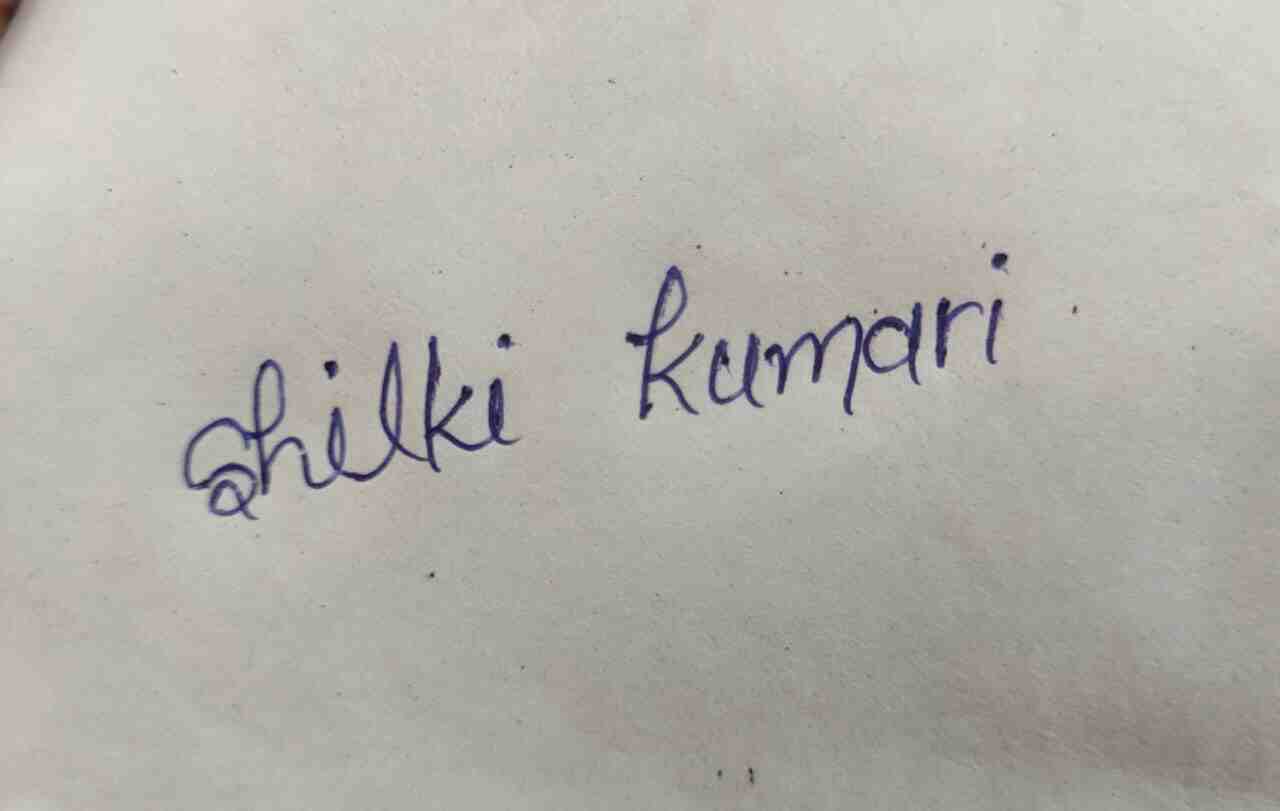 Shilki kumari